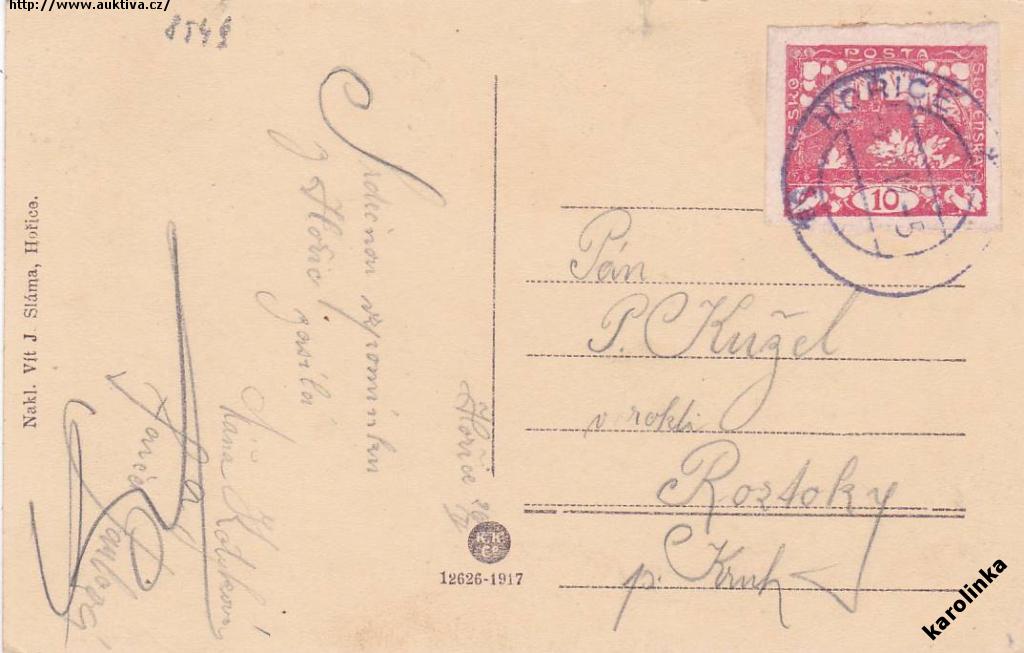 http://www.auktiva.cz/
8549
Nakl. Vít J. Sláma, Hořice.
Srdečnou vzpomínku
z Hořic zasílá
Máňa
Hořice
12626-1917
POSTA
ČESKO
SLOVENSKÁ
10
HOŘICE
Pán
P. Kužel
v rokli
Roztoky
p. Kruh
karolinka